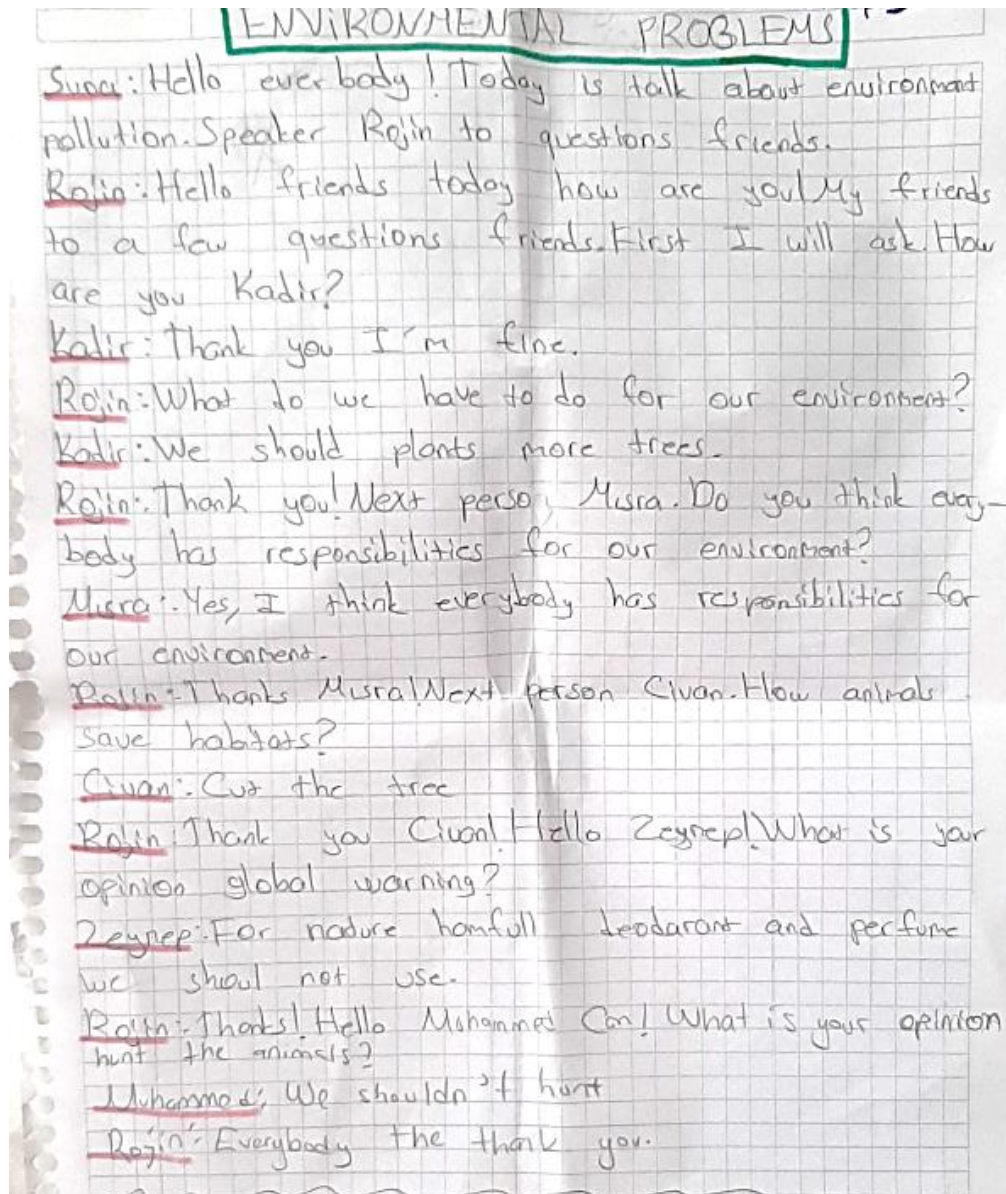 ENVIRONMENTAL PROBLEMS
Hello ever body! Today is talk about environmant
pollution. Speaker Rojin to questions friends.
Rojin: Hello friends today how are you! My friends
to a few questions friends. First I will ask. How
are you Kadir?
Kadir: Thank you I'm fine.
Rojin: What do we have to do for our environment?
Kadir: We should plants more trees.
Rojin: Thank you! Next perso, Mısra. Do you think every-
body has responsibilities for our environment?
Mısra: Yes, I think everybody has responsibilities for
our environment.
Rojin: Thanks Mısra! Next person Civan. How animals
save habitats?
Civan: Cut the tree
Rojin: Thank you Civan! Hello Zeynep! What is your
opinion global warning?
Zeynep: For nature homfull deodarant and perfume
we shoul not use.
Rojin: Thanks! Hello Muhammed Can! What is your opinion
hunt the animals?
Muhammed: We shouldn't hunt
Rojin: Everybody the thank you.